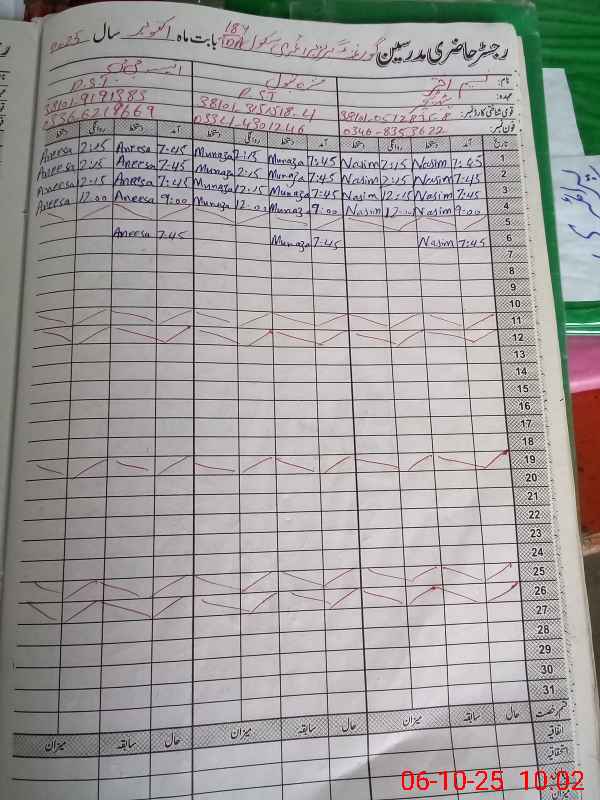 رجسٹر حاضری مدرسین گورنمنٹ گرلز پرائمری سکول 184 TDA بابت ماہ اکتوبر سال 2025
نام: نسیم اختر
عہدہ: PST PST
قومی شناختی کارڈ نمبر: 38101-9191383
فون نمبر: 0346-8353622 03341-4301246 0336-6219669
تاریخ آمد دستخط روانگی دستخط آمد دستخط روانگی دستخط آمد دستخط روانگی دستخط
1 7:45 Nasim 2:15 Nasim 7:45 Munaza 2:15 Munaza 7:45 Aneesa 2:15 Aneesa
2 7:45 Nasim 2:15 Nasim 7:45 Munaza 2:15 Munaza 7:45 Aneesa 2:15 Aneesa
3 7:45 Nasim 12:15 Nasim 7:45 Munaza 12:15 Munaza 7:45 Aneesa 2:15 Aneesa
4 9:00 Nasim 12:00 Nasim 9:00 Munaza 12:00 Munaza 9:00 Aneesa 12:00 Aneesa
5
6 7:45 Nasim 7:45 Munaza 7:45 Aneesa
7
8
9
10
11
12
13
14
15
16
17
18
19
20
21
22
23
24
25
26
27
28
29
30
31
قسم رخصت حال سابقہ میزان حال سابقہ میزان حال سابقہ میزان
اتفاقیہ
استحقاقیہ
میزان
06-10-25 10:02